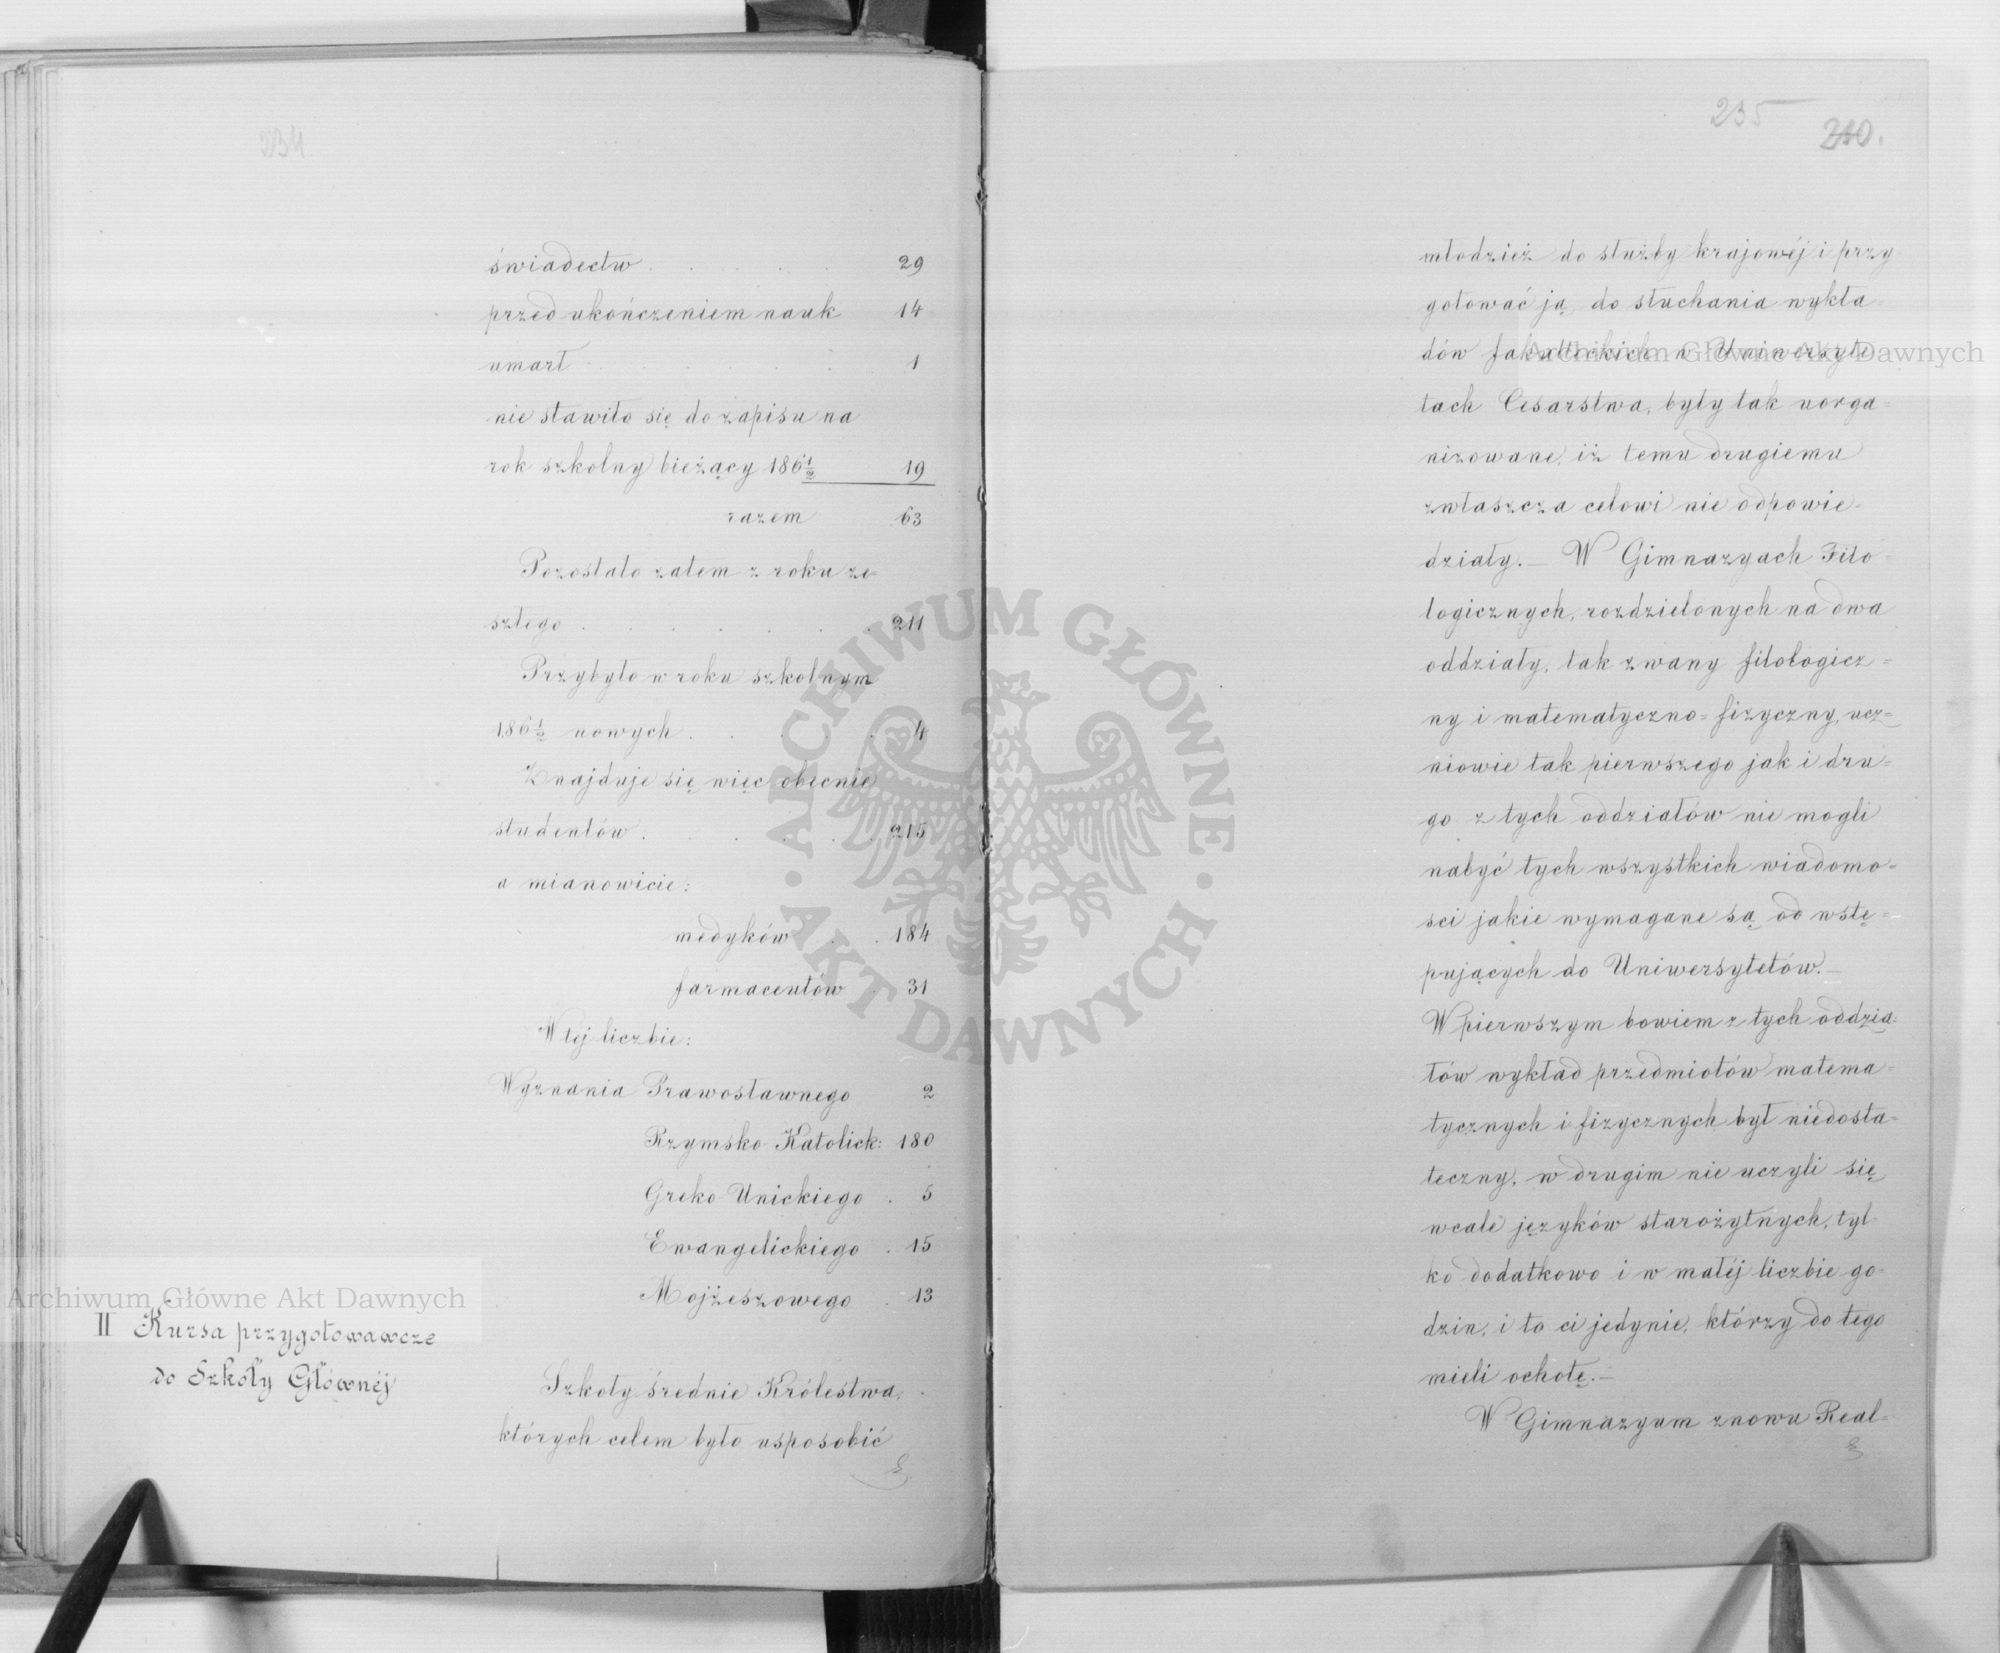 234
świadectw . . . . . 29
przed ukończeniem nauk 14
umarł . . . . 1
nie stawiło się do zapisu na
rok szkolny bieżący 186 1/2 19
razem 63
Pozostało zatem z roku ze-
szłego . . . . . . . 211
Przybyło w roku szkolnym
186 1/2 nowych . . . . 4
Znajduje się więc obecnie
studentów . . . . . 215
a mianowicie:
medyków . . 184
farmaceutów . 31
W tej liczbie:
Wyznania Prawosławnego 2
Rzymsko-Katolick: 180
Greko-Unickiego . 5
Ewangelickiego . 15
Mojżeszowego . 13
II Kursa przygotowawcze
do Szkoły Głównéj
Szkoły średnie Królestwa,
których celem było usposobić
235
210.
młodzież do służby krajowéj i przy
gotować ją do słuchania wykła=
dów fakulteckich w Uniwersyte
tach Cesarstwa, były tak uorga=
nizowane, iż temu drugiemu
zwłaszcza celowi nie odpowie-
działy.— W Gimnazyach Filo=
logicznych, rozdzielonych na dwa
oddziały, tak zwany filologicz=
ny i matematyczno=fizyczny, ucz=
niowie tak pierwszego jak i dru=
go z tych oddziałów nie mogli
nabyć tych wszystkich wiadomo=
sci jakie wymagane są od wstę=
pujących do Uniwersytetów.—
W pierwszym bowiem z tych oddzia-
łów wykład przedmiotów matema=
tycznych i fizycznych był niedosta=
teczny, w drugim nie uczyli się
wcale języków starożytnych, tyl
ko dodatkowo i w małéj liczbie go-
dzin, i to ci jedynie, którzy do tego
mieli ochotę.—
W Gimnazyum znowu Real=
Archiwum Główne Akt Dawnych
Archiwum Główne Akt Dawnych
ARCHIWUM GŁÓWNE • AKT DAWNYCH •